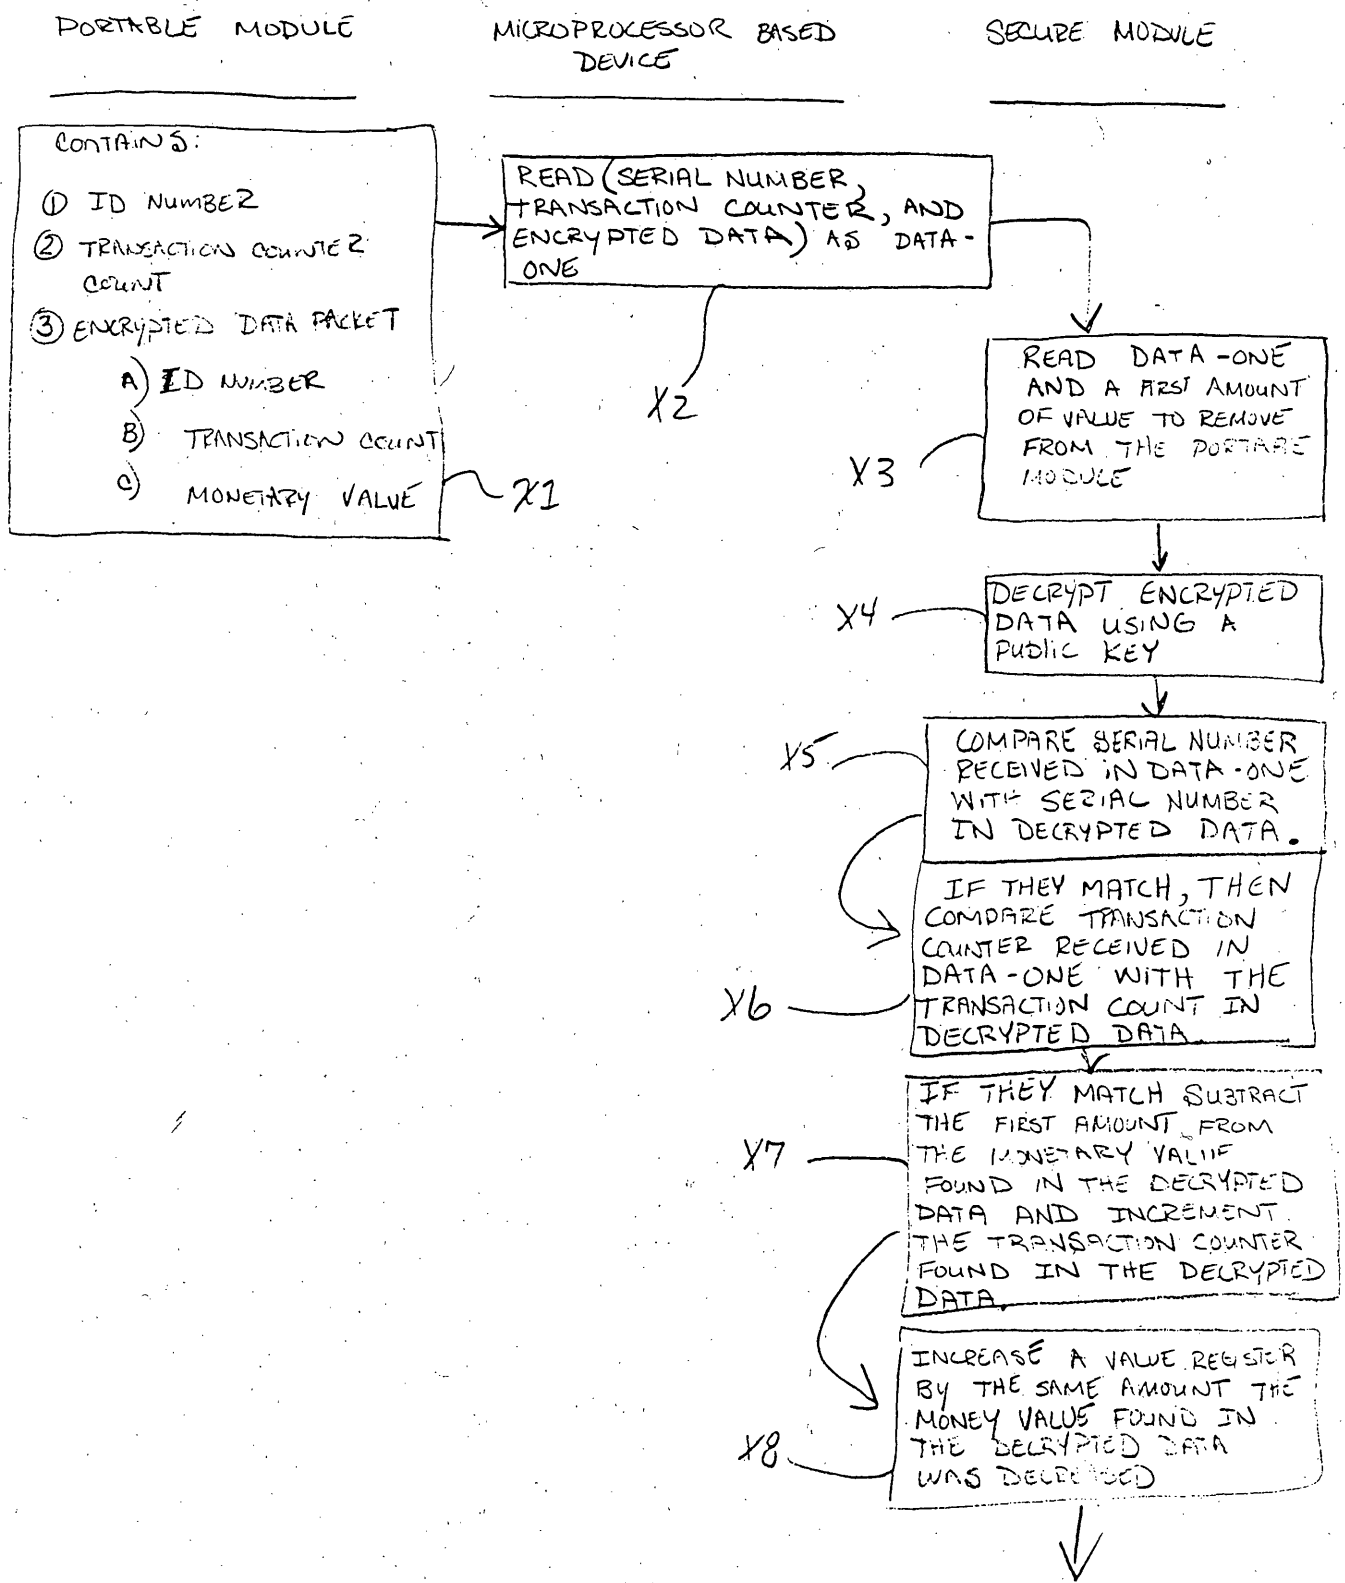 PORTABLE MODULE
MICROPROCESSOR BASED
DEVICE
SECURE MODULE
CONTAINS:
① ID NUMBER
② TRANSACTION COUNTER
COUNT
③ ENCRYPTED DATA PACKET
A) ID NUMBER
B) TRANSACTION COUNT
C) MONETARY VALUE
X1
READ (SERIAL NUMBER,
TRANSACTION COUNTER, AND
ENCRYPTED DATA) AS DATA-
ONE
X2
READ DATA-ONE
AND A FIRST AMOUNT
OF VALUE TO REMOVE
FROM THE PORTABLE
MODULE
X3
DECRYPT ENCRYPTED
DATA USING A
PUBLIC KEY
X4
COMPARE SERIAL NUMBER
RECEIVED IN DATA-ONE
WITH SERIAL NUMBER
IN DECRYPTED DATA.
X5
IF THEY MATCH, THEN
COMPARE TRANSACTION
COUNTER RECEIVED IN
DATA-ONE WITH THE
TRANSACTION COUNT IN
DECRYPTED DATA.
X6
IF THEY MATCH SUBTRACT
THE FIRST AMOUNT FROM
THE MONETARY VALUE
FOUND IN THE DECRYPTED
DATA AND INCREMENT
THE TRANSACTION COUNTER
FOUND IN THE DECRYPTED
DATA.
X7
INCREASE A VALUE REGISTER
BY THE SAME AMOUNT THE
MONEY VALUE FOUND IN
THE DECRYPTED DATA
WAS DECREASED
X8